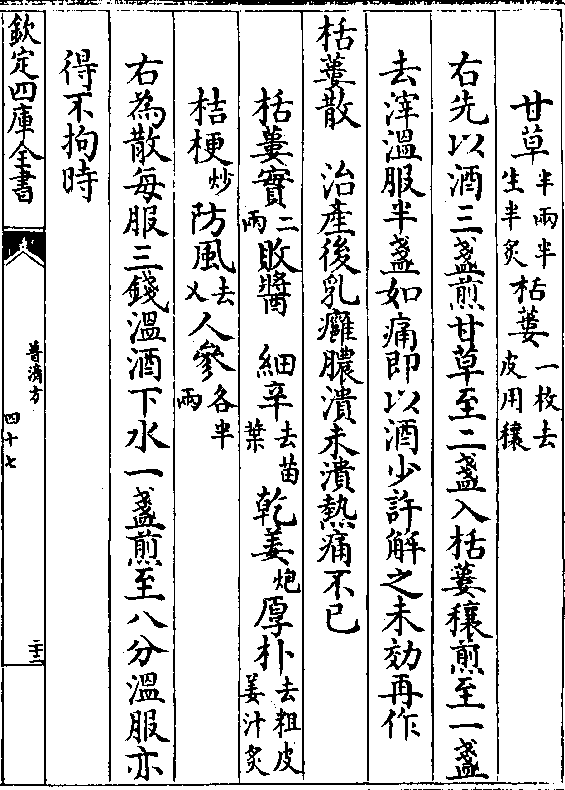 甘草半兩半生半炙栝蔞一枚去皮用穰
右先以酒三盞煎甘草至二盞入栝蔞穰煎至一盞
去滓溫服半盞如痛即以酒少許解之未効再作
栝蔞散　治產後乳癰膿潰未潰熱痛不已
栝蔞實二兩敗醬　細辛去苗葉乾姜炮厚朴去粗皮姜汁炙
桔梗炒防風去乂人參各半兩
右為散每服三錢溫酒下水一盞煎至八分溫服亦
得不拘時
欽定四庫全書
普濟方
四十七
二十二